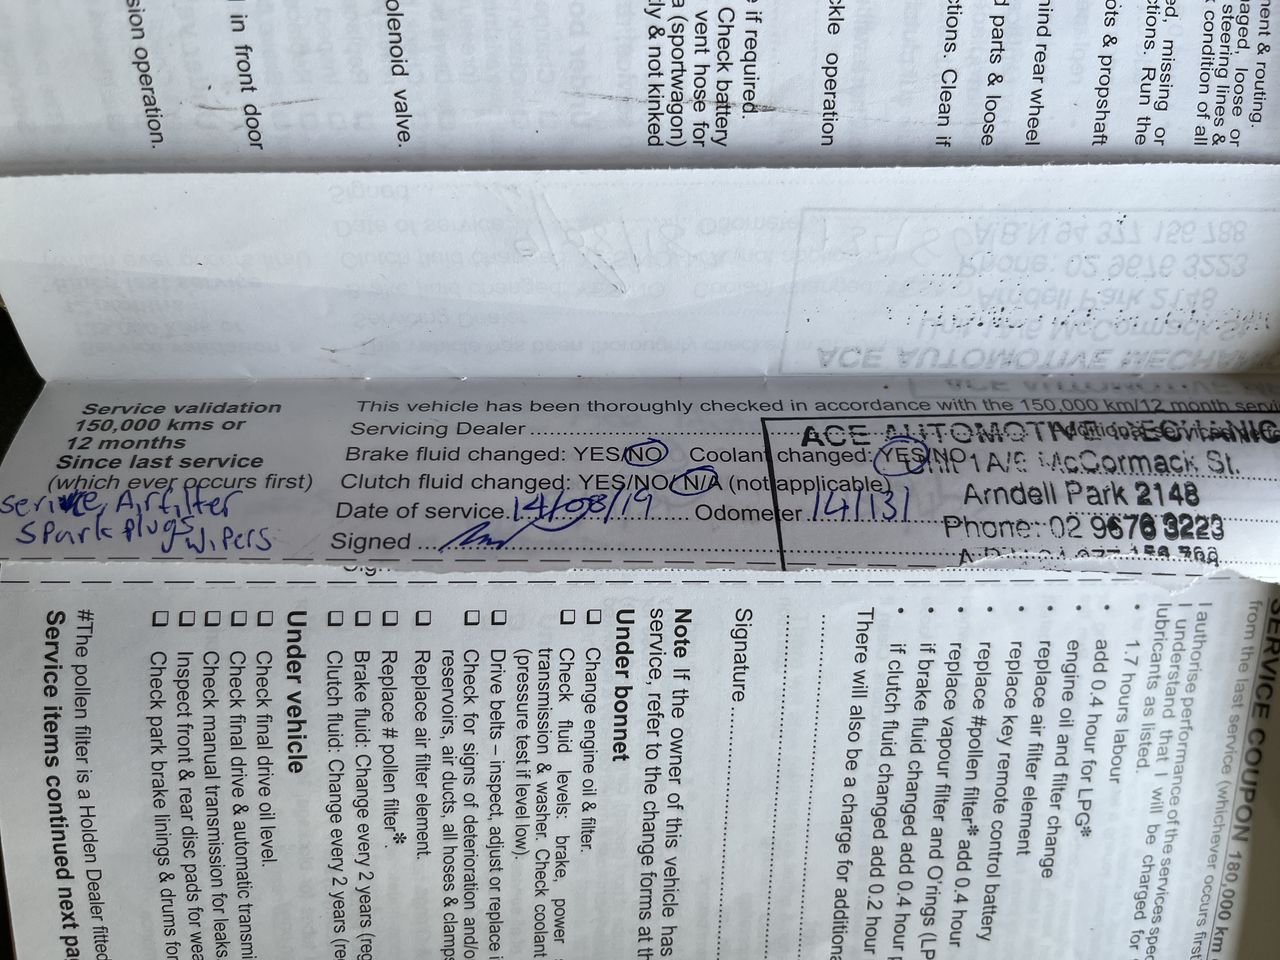 ment & routing.
aged, loose or
steering lines &
condition of all
ed, missing or
ctions. Run the
ots & propshaft
hind rear wheel
d parts & loose
ctions. Clean if
ckle operation
e if required.
Check battery
vent hose for
a (sportwagon)
ly & not kinked
olenoid valve.
l in front door
sion operation.
Service validation
150,000 kms or
12 months
Since last service
(which ever occurs first)
service, Airfilter
Spark plugs wipers
This vehicle has been thoroughly checked in accordance with the 150,000 km/12 month servi
Servicing Dealer
Brake fluid changed: YES/NO Coolant changed: YES/NO
Clutch fluid changed: YES/NO/N/A (not applicable)
Date of service 14/08/19 Odometer 141131
Signed
ACE AUTOMOTIVE MECHANIC
1 A/6 McCormack St.
Arndell Park 2148
Phone: 02 9676 3223
SERVICE COUPON 180,000 km
from the last service (whichever occurs first
I authorise performance of the services spec
I understand that I will be charged for
lubricants as listed.
• 1.7 hours labour
• add 0.4 hour for LPG*
• engine oil and filter change
• replace air filter element
• replace key remote control battery
• replace #pollen filter* add 0.4 hour
• replace vapour filter and O'rings (LP
• if brake fluid changed add 0.4 hour
• if clutch fluid changed add 0.2 hour
There will also be a charge for additiona
Signature
Note If the owner of this vehicle has
service, refer to the change forms at th
Under bonnet
❑ Change engine oil & filter.
❑ Check fluid levels: brake, power
transmission & washer. Check coolant
(pressure test if level low).
❑ Drive belts – inspect, adjust or replace i
❑ Check for signs of deterioration and/o
reservoirs, air ducts, all hoses & clamps
❑ Replace air filter element.
❑ Replace # pollen filter*.
❑ Brake fluid: Change every 2 years (reg
❑ Clutch fluid: Change every 2 years (reg
Under vehicle
❑ Check final drive oil level.
❑ Check final drive & automatic transmi
❑ Check manual transmission for leaks.
❑ Inspect front & rear disc pads for wea
❑ Check park brake linings & drums for
#The pollen filter is a Holden Dealer fitted
Service items continued next pag